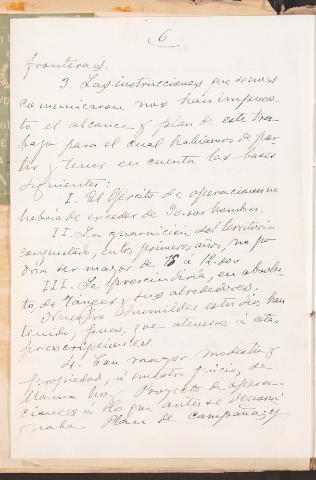 6
fronteras.
3. Las instrucciones que se nos
comunicaron nos han impues-
to el alcance y plan de este tra-
bajo para el cual habíamos de par-
tir y tener en cuenta las bases
siguientes:
I. El Ejército de operaciones no
habría de exceder de 90.000 hombres.
II. La guarnición del territorio
conquistado, en los primeros años, no po-
dría ser mayor de á 12.000
III. Se prescindiría, en absolu-
to, de Tánger y sus alrededores.
Nuestro humilde estudio han
tenido, pues, que atenerse á estas
prescripciones.
4. Con mayor modestia y
propiedad, á nuestro juicio, se
llama hoy Proyecto de opera-
ciones á lo que antes se denomi-
naba Plan de campaña; y